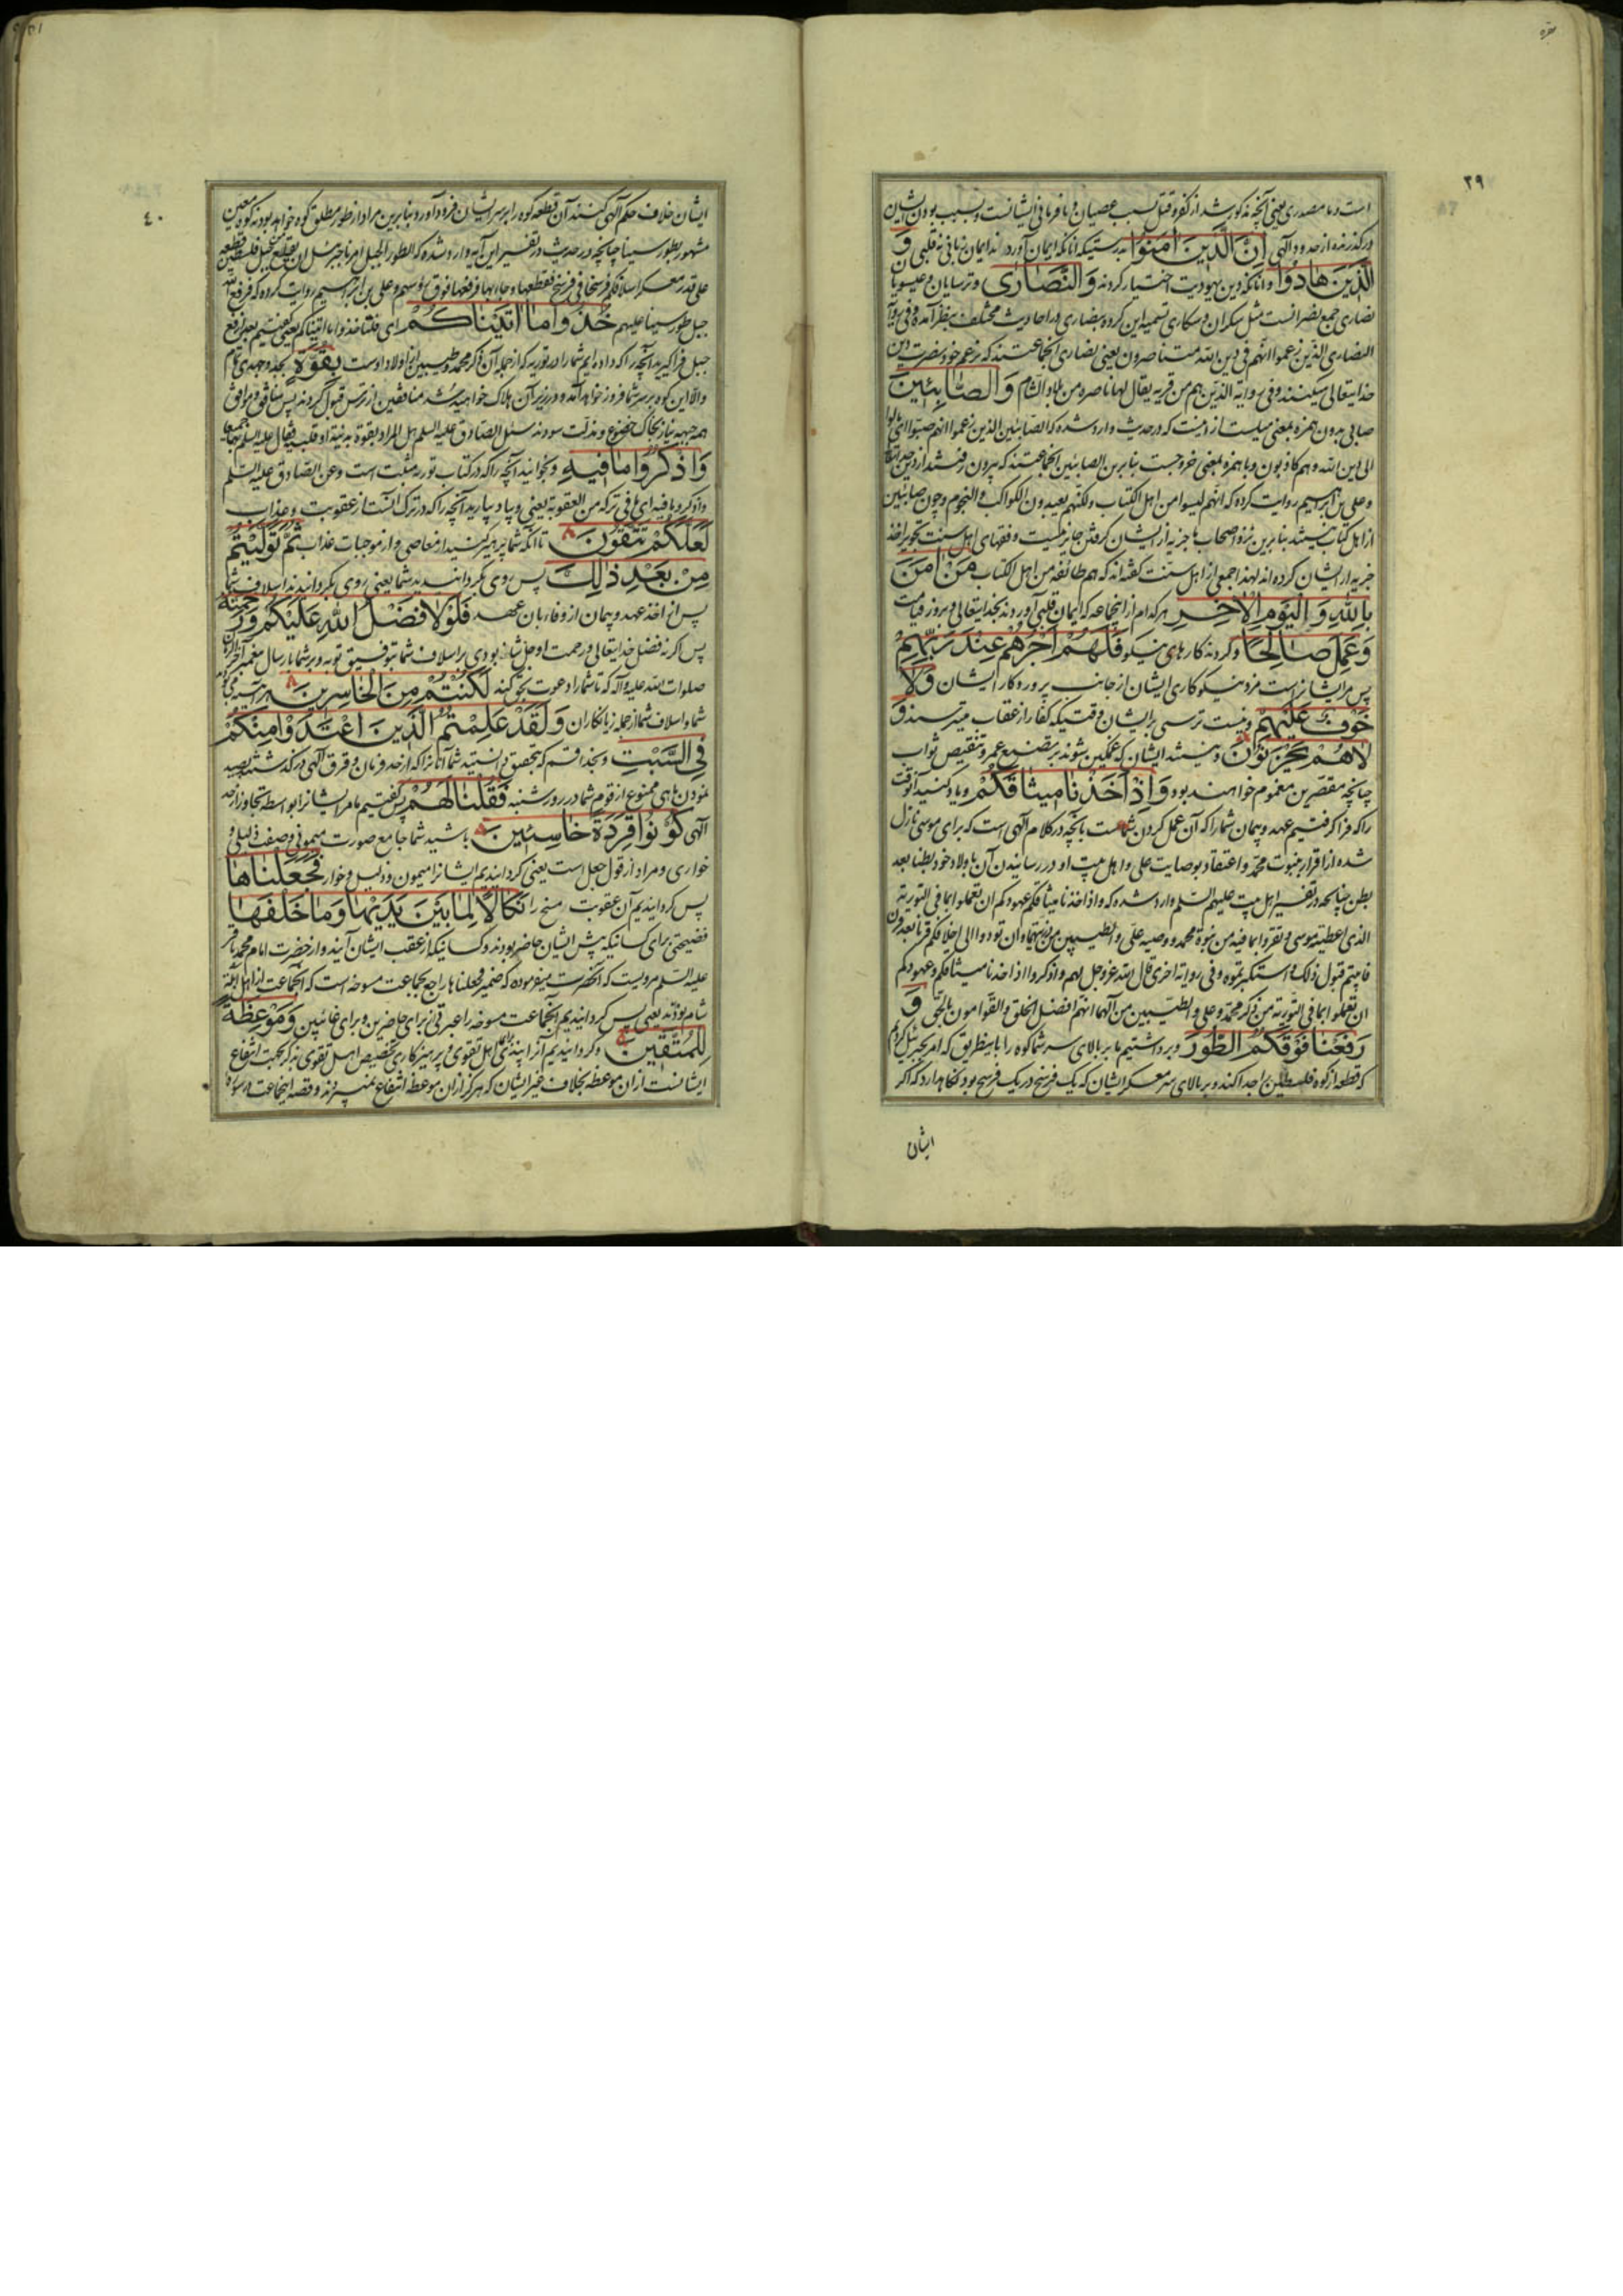 بقره
۳۹
است و ما مصدری یعنی آنچه مذکور شد از کفر و قتل بسبب عصیان و نافرمانی ایشانست و بسبب بودن ایشان
درگذرنده از حدود الهی اِنَّ الَّذینَ اٰمَنُوا بدرستیکه آنانکه ایمان آورده‌اند ایمان زبانی نه قلبی وَ
الَّذینَ هادُوا و آنانکه دین یهودیت اختیار کردند وَ النَّصاری و ترسایان و عیسویان
نصاری جمع نصرانست مثل سکران و سکاری تسمیه این گروه بنصاری در احادیث مختلف بنظر آمده و فی روایة
النصاری الذین زعموا انهم فی دین الله متناصرون یعنی نصاری آنجماعتند که بزعم خود نصرت دین
خدایتعالی میکنند و فی روایة الذین هم من قریة یقال لها ناصره من بلاد الشام وَ الصّابِئینَ
صابی بدون همزه بمعنی میلست از دینست که در حدیث وارد شده که الصابئین الذین زعموا انهم صبوا
الی دین الله و هم کاذبون و با همزه بمعنی خروجست بنابرین الصابئین آنجماعتند که بیرون رفتند از دین خدا
و علی بن ابراهیم روایت کرده که انهم لیسوا من اهل الکتاب ولکنهم یعبدون الکواکب و النجوم و چون صابئین
از اهل کتاب نیستند بنابرین نزد اصحاب ما جزیه از ایشان گرفتن جایز نیست و فقهای اهل سنت تجویز اخذ
جزیه از ایشان کرده‌اند لهذا جمعی از اهل سنت گفته‌اند که هم طائفه من اهل الکتاب مَنْ اٰمَنَ
بِاللّٰهِ وَ الْیَوْمِ الْاٰخِرِ هرکدام از اینجماعه که ایمان قلبی آوردند بخدایتعالی و بروز قیامت
وَ عَمِلَ صالِحًا و کردند کارهای نیکو فَلَهُمْ اَجْرُهُمْ عِنْدَ رَبِّهِمْ
پس مر ایشانراست مزد نیکوکاری ایشان از جانب پروردکار ایشان وَ لا
خَوْفٌ عَلَیْهِمْ و نیست ترسی بر ایشان وقتیکه کفار از عقاب میترسند وَ
لا هُمْ یَحْزَنُونَ و نیستند ایشان که غمگین شوند بر تضییع عمر و تنقیص ثواب
چنانچه مقصرین مغموم خواهند بود وَ اِذْ اَخَذْنا میثاقَکُمْ و یاد کنید آنوقت
را که فرا گرفتیم عهد و پیمان شما را که آن عمل کردن شماست بآنچه در کلام الهی است که برای موسی نازل
شده از اقرار بنبوت محمد و اعتقاد بوصایت علی و اهل بیت او در رسانیدن آن باولاد خود بطنا بعد
بطن چنانچه در تفسیر اهل بیت علیهم السلم وارد شده که و اذ اخذنا میثاقکم عهودکم ان تعملوا بما فی التوریة
الذی اعطیته موسی و تقروا بما فیه من نبوة محمد و وصیه علی و الطیبین من ذریتهما و ان تودوا الی اخلافکم قرنا بعد قرن
فابیتم قبول ذلک و استکبرتموه و فی روایة اخری قال الله عز و جل لهم و اذکروا اذ اخذنا میثاقکم و عهودکم
ان تعملوا بما فی التوریة من ذکر محمد و علی و الطیبین من آلهما انهم افضل الخلق و القوامون بالحق وَ
رَفَعْنا فَوْقَکُمُ الطُّورَ و برداشتیم ما بر بالای سر شما کوه را باینطریق که امر بجبرئیل کردیم
که قطعه از کوه فلسطین را جدا کند و بر بالای سر معسکر ایشان که یک فرسخ در یک فرسخ بود نگاهدارد که اگر
ایشان
۴۰
ایشان خلاف حکم الهی کنند آن قطعه کوه را بر سر ایشان فرود آورد بنابرین مراد از طور مطلق کوه خواهد بود نه کوه معین
مشهور بطور سینا چنانچه در حدیث در تفسیر این آیه وارد شده که الطور الجبل امرنا جبرئیل ان یقلع من جبل فلسطین قطعة
علی قدر معسکر اسلافکم فرسخا فی فرسخ فقطعها و جاء بها فرفعها فوق رؤسهم و علی بن ابراهیم روایت کرده که فرفع الله
جبل طور سینا علیهم خُذُوا ما اٰتَیْناکُمْ ای قلنا خذوا ما اتیناکم یعنی گفتیم بعد از رفع
جبل فرا گیرید آنچه را که داده‌ایم شما را در توریه که از جمله آن ذکر محمد و طیبین از اولاد اوست بِقُوَّةٍ بجد و جهد تمام
و الا این کوه بر سر شما فرود خواهد آمد و در زیر آن هلاک خواهید شد منافقین از ترس قبول کردند پس منافق و موافق
همه جبهه نیاز بخاک خضوع و مذلت سودند سئل الصادق علیه السلم هل المراد بقوة بدنیة او قلبیة فقال علیه السلم بهما معا
وَ اذْکُرُوا ما فیهِ و بخوانید آنچه را که در کتاب توریه مثبت است و عن الصادق علیه السلم
و اذکروا ما فیه ای ما فی ترکه من العقوبة یعنی و بیاد بیارید آنچه را که در ترک آنست از عقوبت و عذاب
لَعَلَّکُمْ تَتَّقُونَ تا آنکه شما پرهیز کنید از معاصی و از موجبات عذاب ثُمَّ تَوَلَّیْتُمْ
مِنْ بَعْدِ ذٰلِکَ پس روی گردانیدید شما یعنی روی بگردانیدند اسلاف شما
پس از اخذ عهد و پیمان از وفا بآن عهد فَلَوْلا فَضْلُ اللّٰهِ عَلَیْکُمْ وَ رَحْمَتُهُ
پس اگر نه فضل خدایتعالی و رحمت او جل شانه بودی بر اسلاف شما بتوفیق توبه و بر شما بارسال پیغمبر آخر الزمان
صلوات الله علیه و آله که تا شما را دعوت بحق کند لَکُنْتُمْ مِنَ الْخاسِرینَ هر آینه می‌بودید
شما و اسلاف شما از جمله زیانکاران وَ لَقَدْ عَلِمْتُمُ الَّذینَ اعْتَدَوْا مِنْکُمْ
فِی السَّبْتِ و بخدا قسم که بتحقیق دانستید شما آنانرا که از حد فرمان و قرق الهی درگذشتند بصید
نمودن ماهی ممنوع از قوم شما در روز شنبه فَقُلْنا لَهُمْ پس گفتیم ما مر ایشانرا بواسطه تجاوز از حد
الهی کُونُوا قِرَدَةً خاسِئینَ باشید شما جامع صورت میمونی و صفت ذلیلی و
خواری و مراد از قول جعل است یعنی گردانیدیم ایشانرا میمون و ذلیل و خوار فَجَعَلْناها
پس گردانیدیم آن عقوبت مسخ را نَکالًا لِما بَیْنَ یَدَیْها وَ ما خَلْفَها
فضیحتی برای کسانیکه پیش ایشان حاضر بودند و کسانیکه از عقب ایشان آیند و از حضرت امام محمد باقر
علیه السلم مرویست که آنحضرت میفرموده که ضمیر فجعلناها راجع بجماعت مسوخه است که آنجماعت از اهل ایله
شام بودند یعنی پس گردانیدیم آنجماعت مسوخه را عبرتی از برای حاضرین و برای غائبین وَ مَوْعِظَةً
لِلْمُتَّقینَ و گردانیدیم آنرا پندی برای اهل تقوی و پرهیزکاری تخصیص اهل تقوی بذکر بجهت انتفاع
ایشانست از آن موعظه بخلاف غیر ایشان که هرگز از آن موعظه انتفاع نمیبرند و قصه اینجماعت